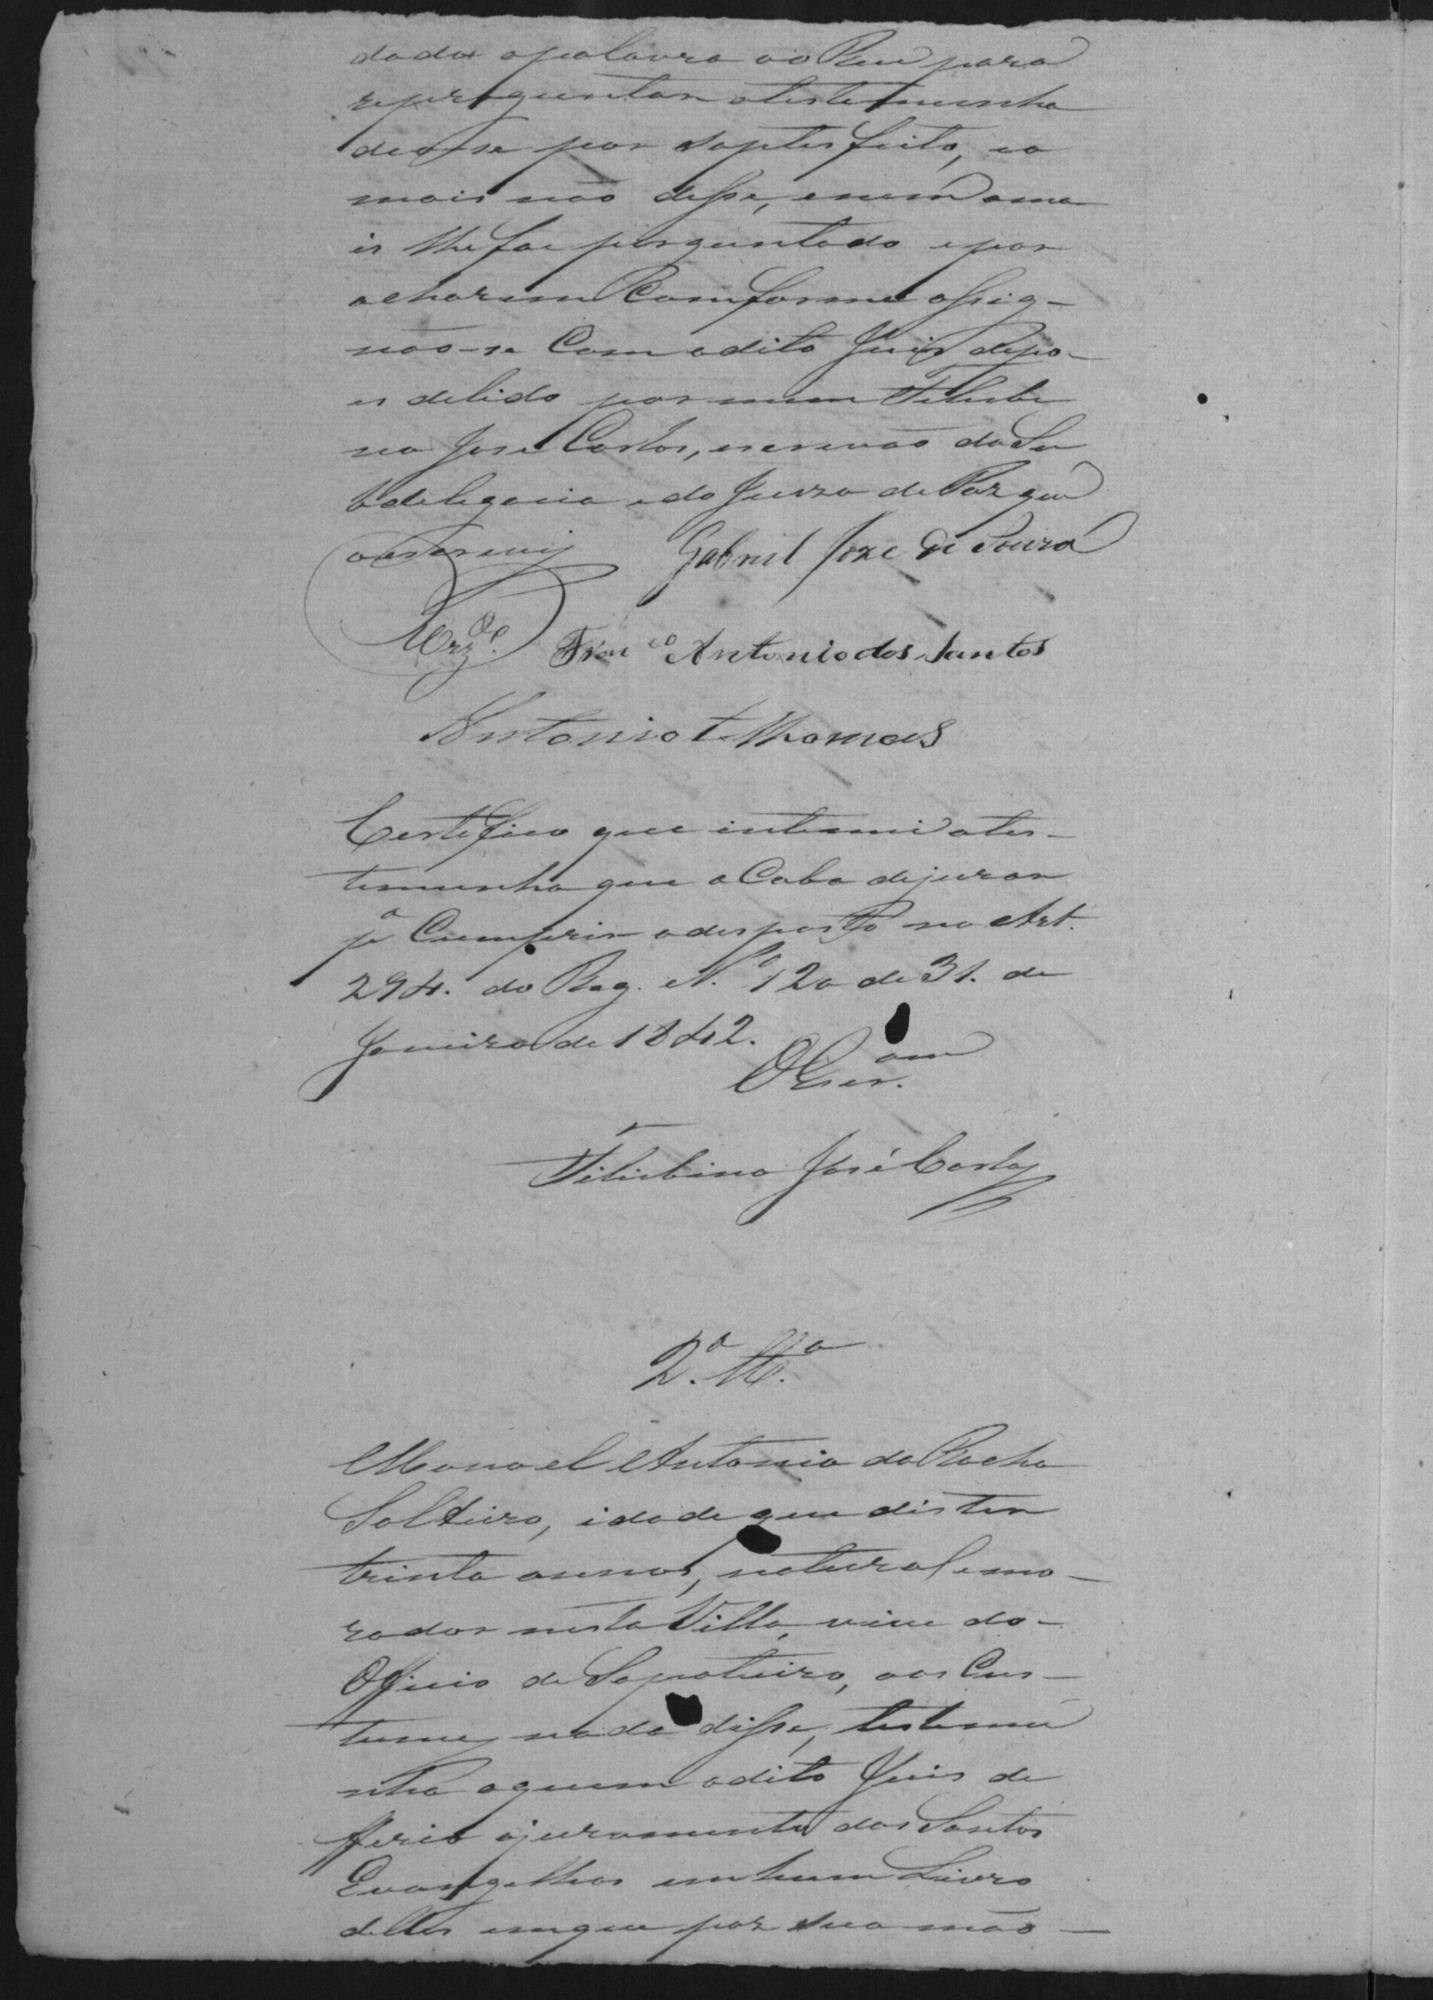 dada a palavra ao Reu para
reperguntar a testemunha
deo-se por saptesfeito, e o
mais não disse, e nem a ma
is lhe foi perguntado e por
acharem Comforme assig-
não-se Com o dito Juis depo-
is de lido por mim Felisbi
no José Costa, escrivão da Su
bdelegacia e do Juizo de Paz que
o escrevij Gabriel Joze de Souza
Franco Antonio dos Santos
Antonio Thomaes
Certefico que intemei a tes-
temunha que a Caba de jurar
pa Cumprir o desposto no Art.
294. do Reg. No 120 de 31. de
Janeiro de 1842.
O Escram
Felisbino José Costa
2a Ta
Manoel Antonio da Rocha
Solteiro, idade que dis ter
trinta annos, natural e mo-
rador nesta Villa, vive do-
Officio de Sapateiro, aos Cus-
tumes nada disse, testemu
nha a quem o dito Juis de
fferio o juramento dos Santos
Evangelhos em hum Livro
delles em que por sua mão